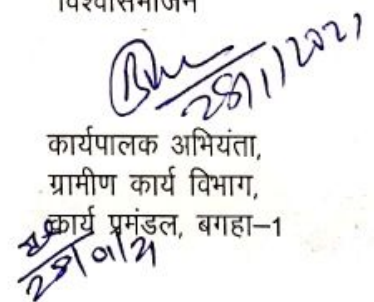 विश्वासभाजन
28/1/2021
कार्यपालक अभियंता,
ग्रामीण कार्य विभाग,
कार्य प्रमंडल, बगहा–1
28/01/21